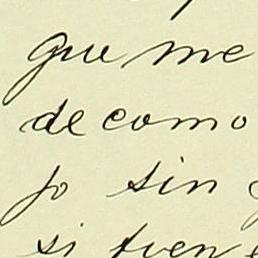 que me
de como
jo sin
si tuen